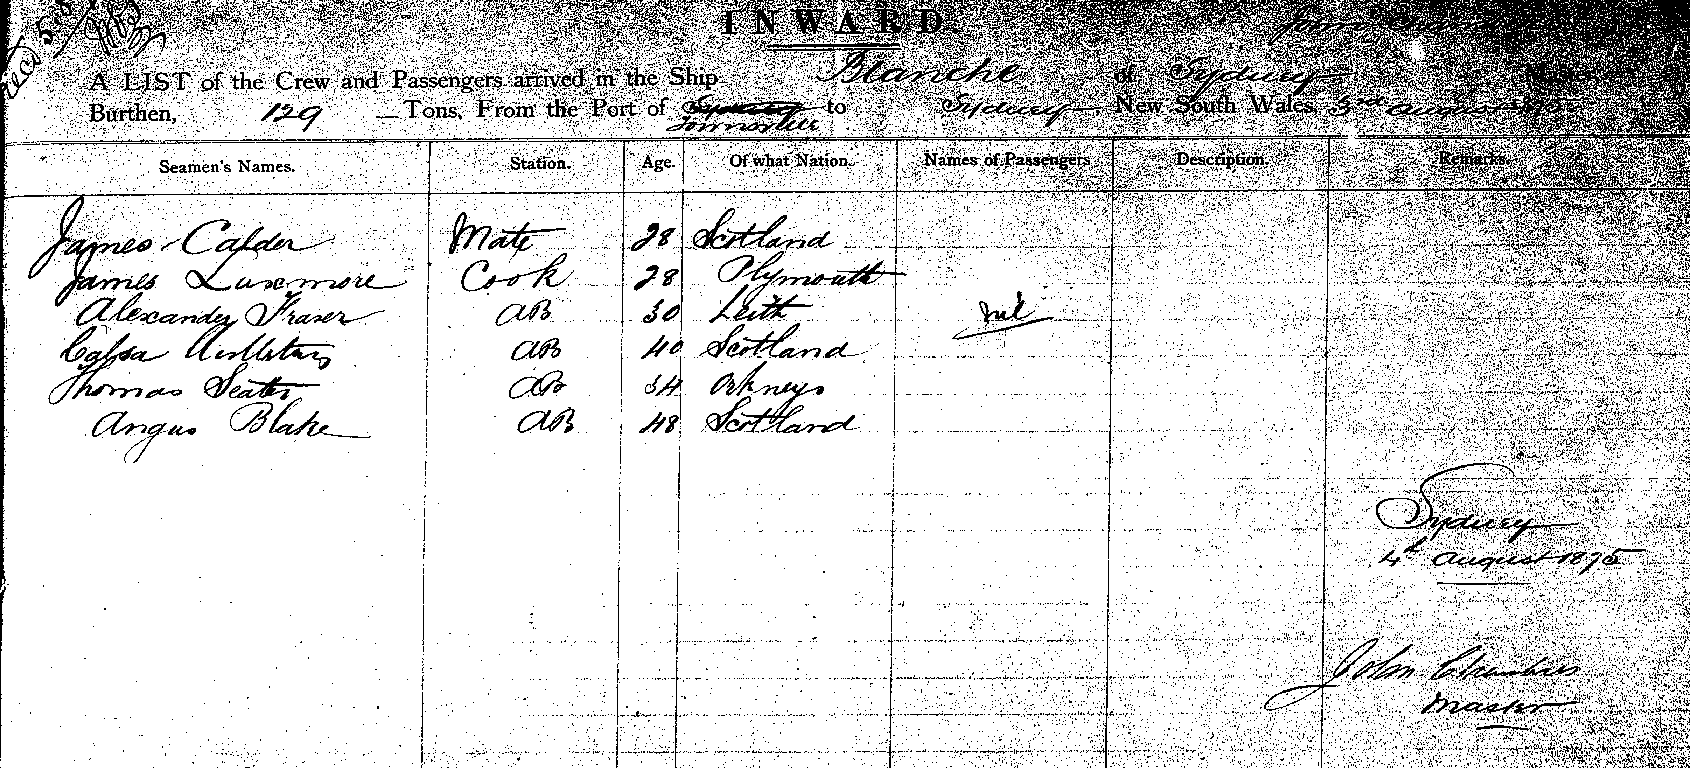 INWARD.
A LIST of the Crew and Passengers arrived in the Ship Blanche of Sydney
Burthen, 129 Tons, From the Port of to Sydney New South Wales, 3rd August
Seamen's Names. Station. Age. Of what Nation. Names of Passengers Description. Remarks.
James Calder Mate 28 Scotland
James Luxmore Cook 28 Plymouth
Alexander Fraser AB 30 Leith nil
AB 40 Scotland
Thomas Seater AB 34 Orkneys
Angus Blake AB 48 Scotland
Sydney
4th August 1875
John
Master